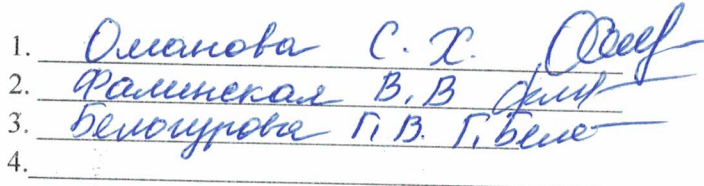 1. Оманова С. Х.
2. Фалинская В. В
3. Белогурова Г. В. Г. Бело
4.